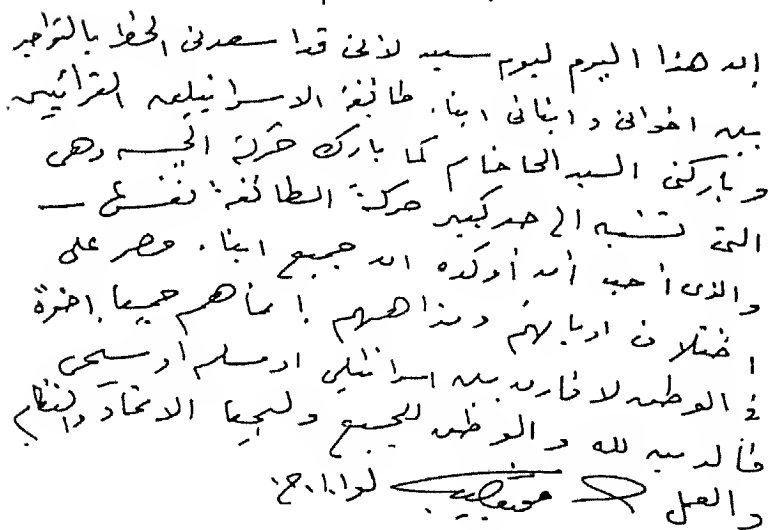 إن هذا اليوم ليوم سعيد لأنى قد أسعدنى الحظ بالتواجد
بين اخوانى وابنائى ابناء طائفة الاسرائيليين القرائيين
وباركنى السيد الحاخام كما بارك حركة الجيش وهى
التى تشبه الى حد كبير حركة الطائفة نفسها –
والذى أحب أن أؤكده ان جميع ابناء مصر على
اختلاف اديانهم ومذاهبهم إنما هم جميعا إخوة
فى الوطن لا فارق بين اسرائيلى او مسلم أو مسيحى
فالدين لله والوطن للجميع وليحيا الاتحاد والنظام
والعمل محمد نجيب لواء أ.ح.